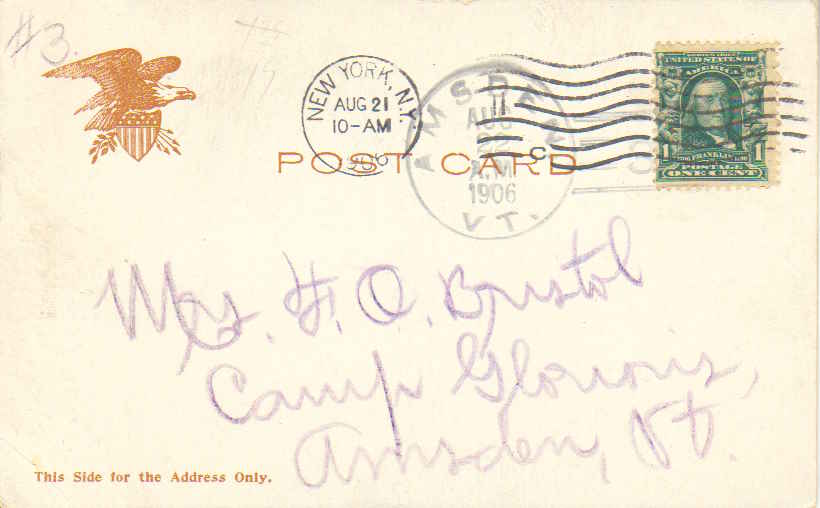 #3.
NEW YORK, N.Y.
AUG 21
10-AM
1906
AMSDEN
AUG
22
A.M
1906
VT.
UNITED STATES OF
AMERICA
FRANKLIN
1 1
POSTAGE
ONE CENT
POST CARD
Mrs. H. O. Bristol
Camp Glorious,
Amsden, Vt.
This Side for the Address Only.